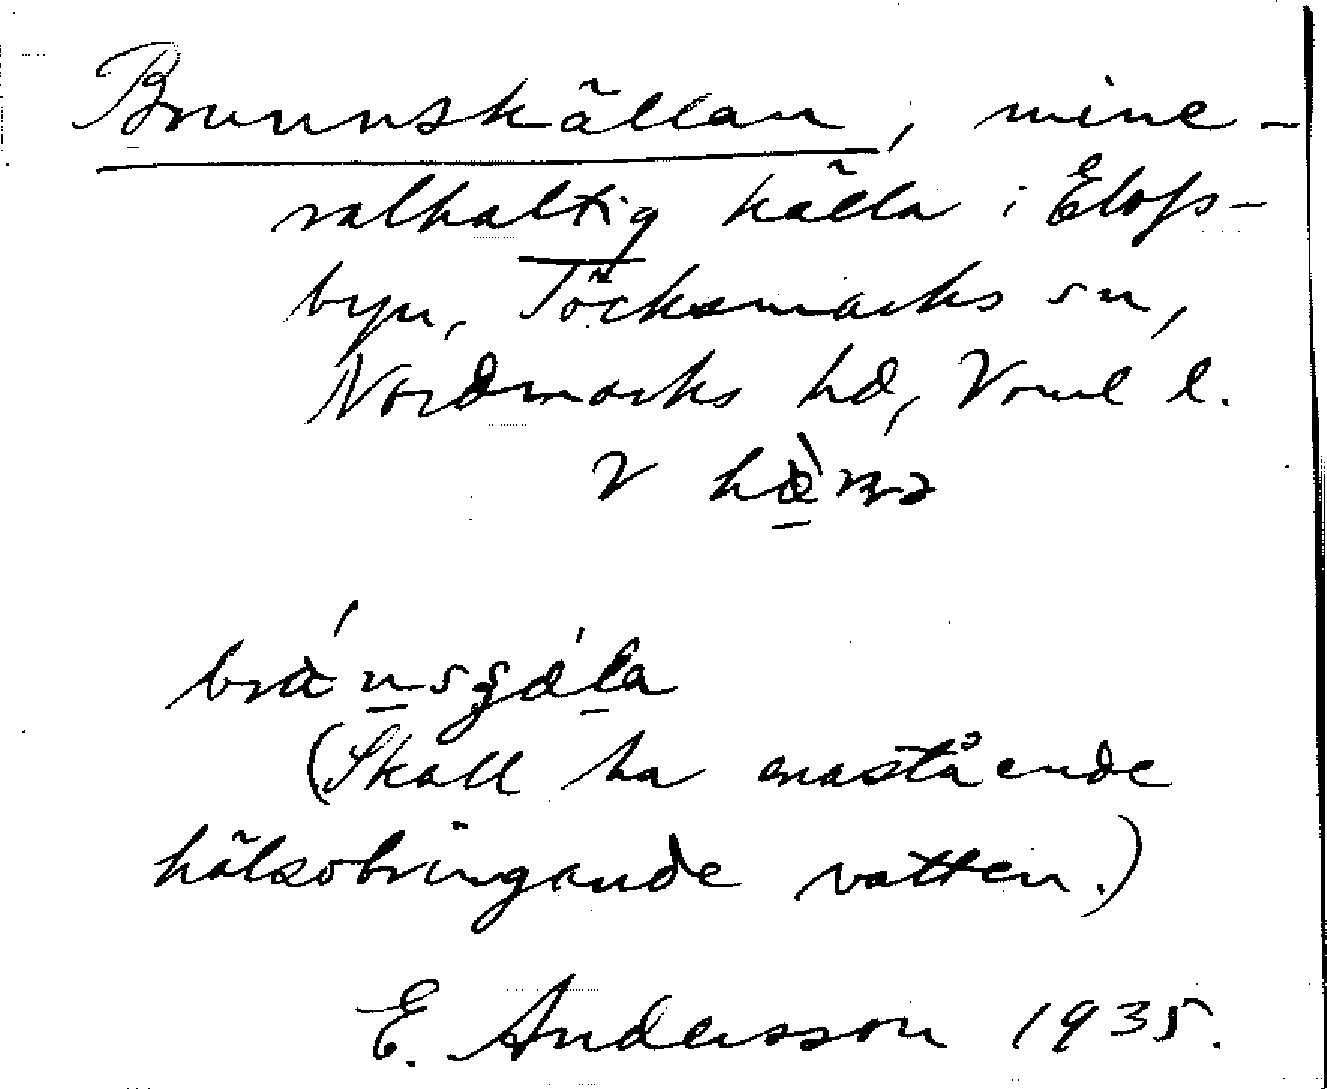 Brunnskällan, mine-
ralhaltig källa i Elofs-
byn, Töcksmarks sn,
Nordmarks hd, Vrml l.
V
(Skall ha enastående
hälsobringande vatten.)
E. Andersson 1935.